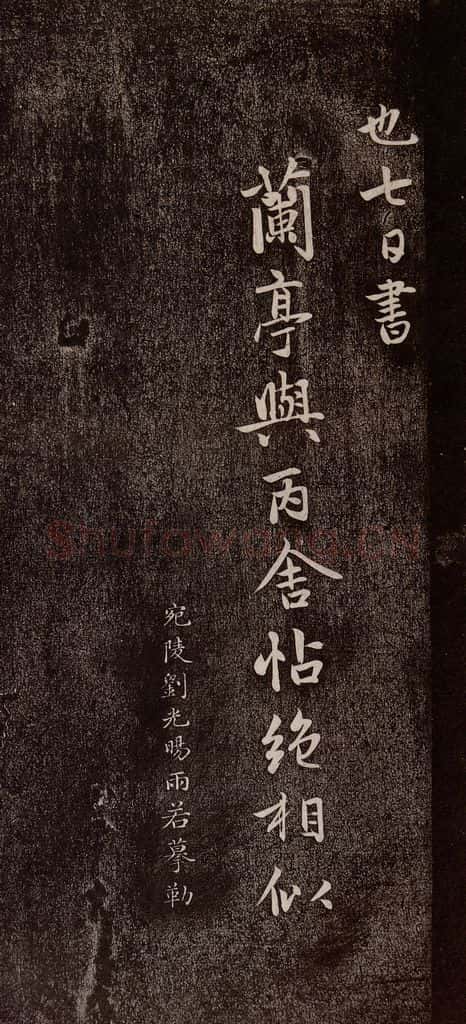 也七日書
蘭亭與丙舍帖絶相似
宛陵劉光暘雨若摹勒
Shufawang.CN